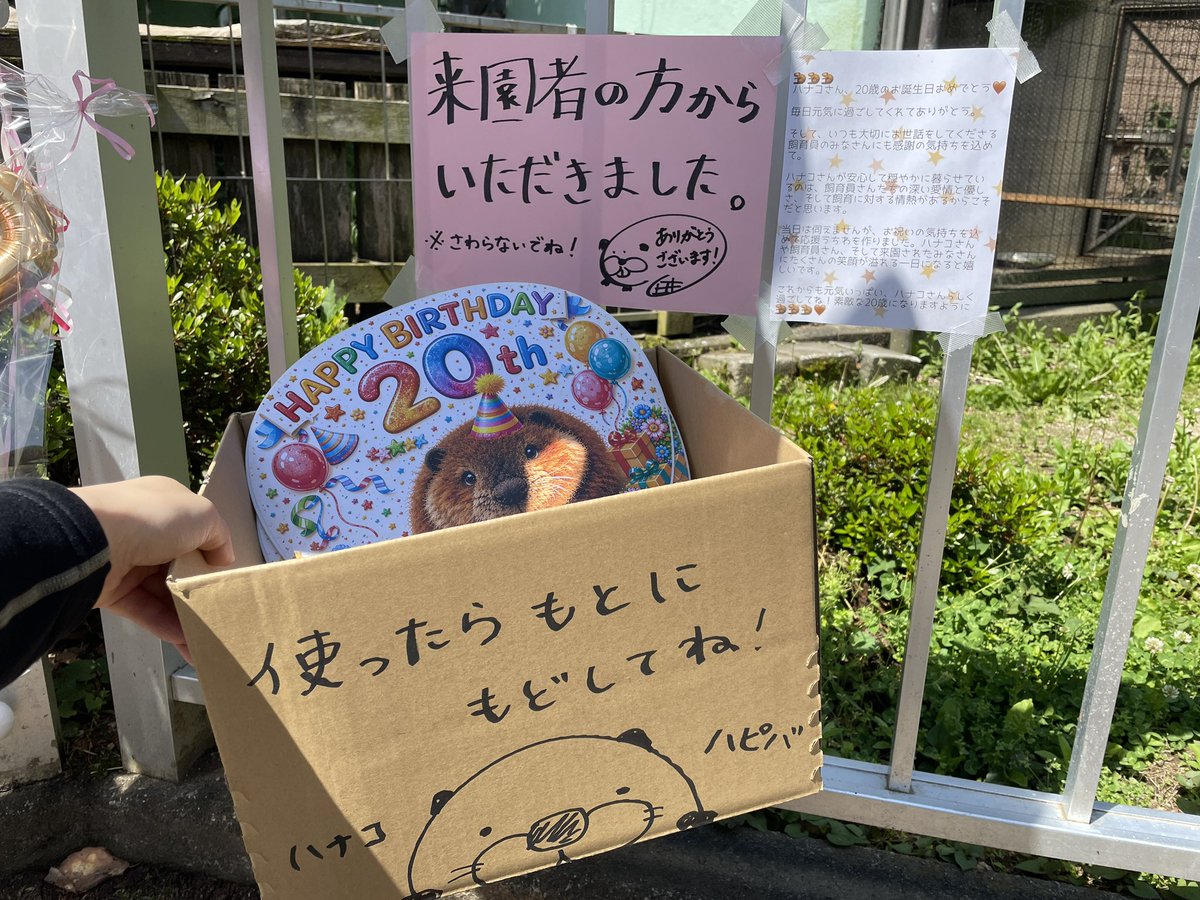 来園者の方から
いただきました。
※さわらないでね!
ありがとう
ございます!
ハナコさん、20歳のお誕生日おめでとう
毎日元気に過ごしてくれてありがとう。
そして、いつも大切にお世話をしてくださる
飼育員のみなさんにも感謝の気持ちを込め
て。
ハナコさんが安心して穏やかに暮らせてい
るのは、飼育員さんたちの深い愛情と優し
さ、そして飼育に対する情熱があるからこそ
だと思います。
当日は伺えませんが、お祝いの気持ちを込
めて応援うちわを作りました。ハナコさん
や飼育員さん、そして来園されたみなさん
にたくさんの笑顔が溢れる一日になると嬉
しいです。
これからも元気いっぱい、ハナコさんらしく
過ごしてね!素敵な20歳になりますように
HAPPY BIRTHDAY
20th
使ったらもとに
もどしてね!
ハナコ
ハピバ